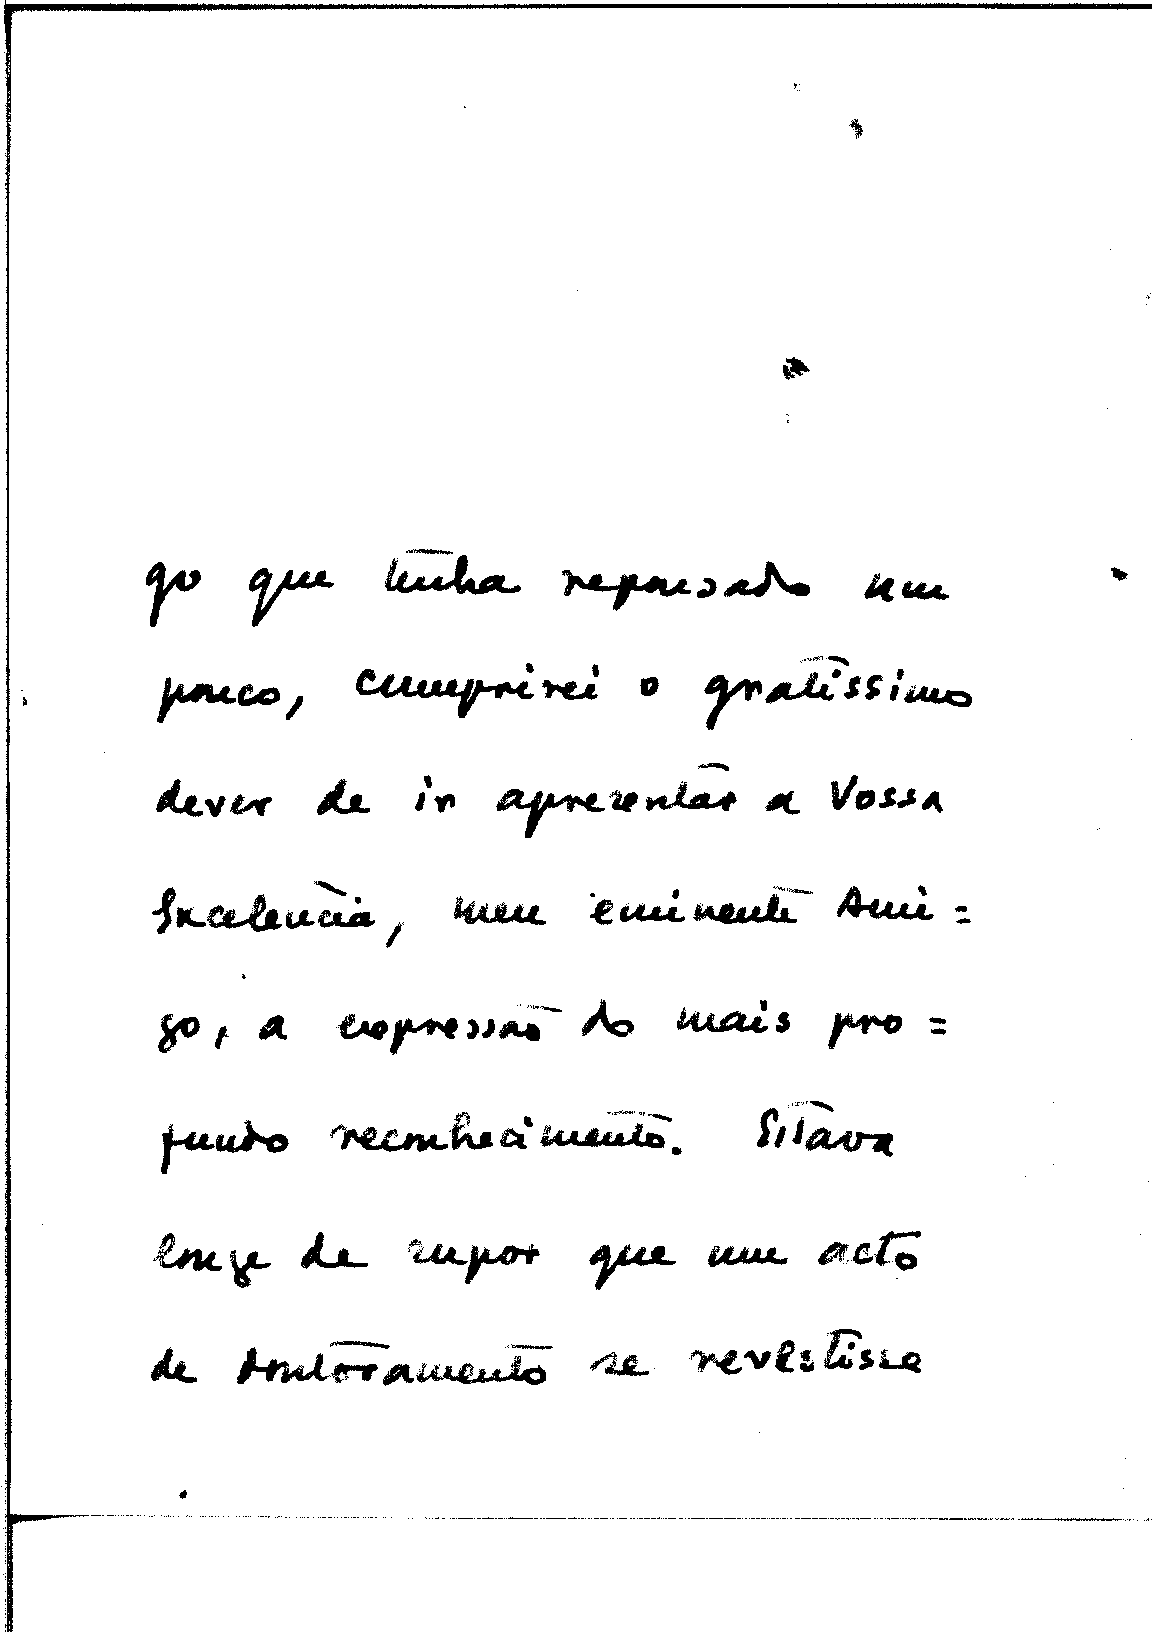 go que tenha repousado um
pouco, cumprirei o gratissimo
dever de ir apresentar a Vossa
Excelencia, meu eminente Ami=
go, a expressão do mais pro=
fundo reconhecimento. Estava
longe de supor que um acto
de doutoramento se revestisse